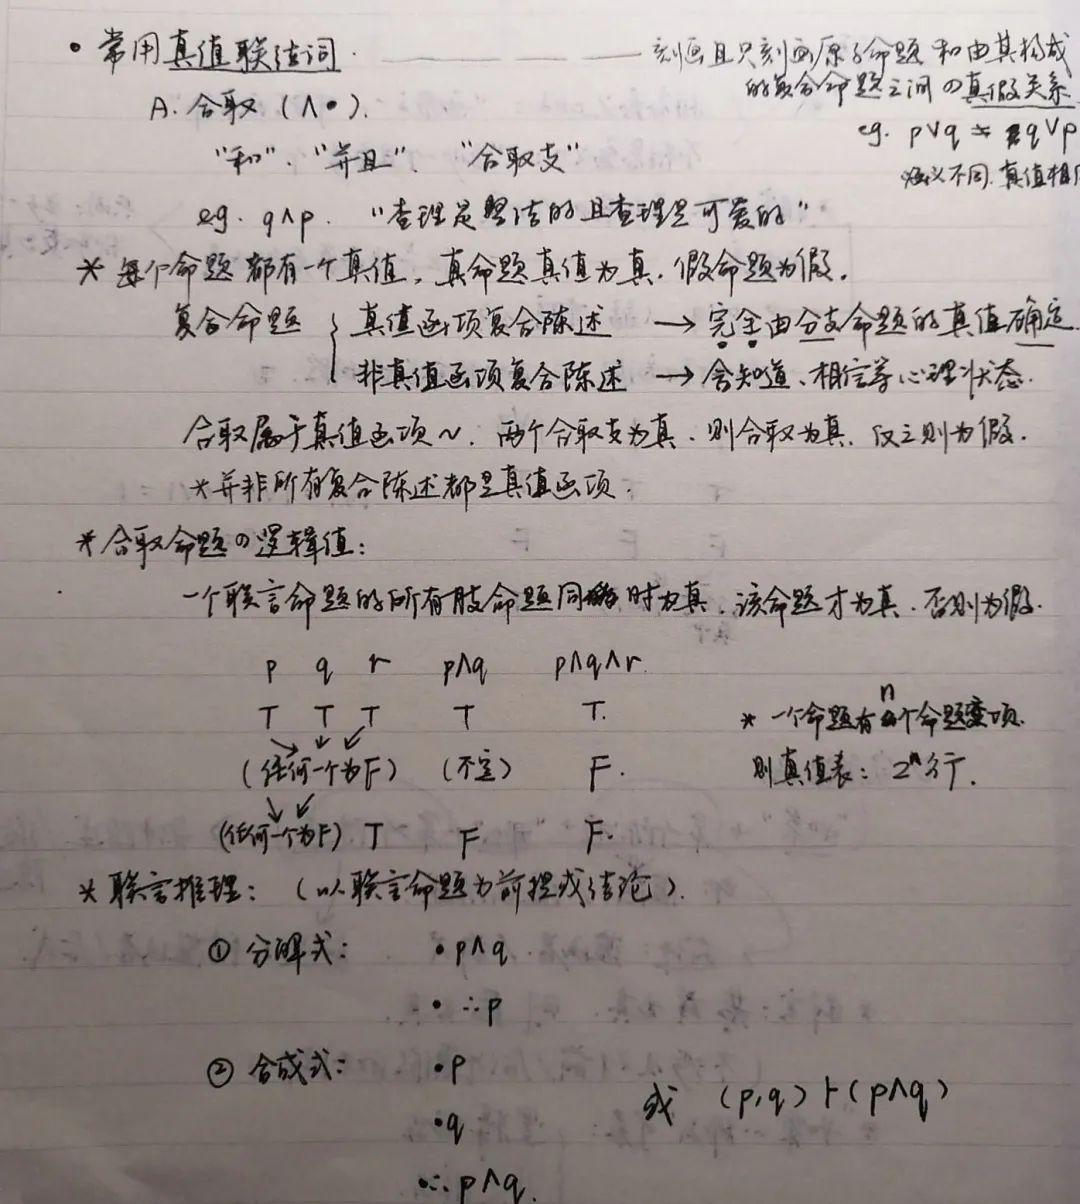 • 常用真值联结词. ———— 刻画且只刻画原子命题和由其构成
的复合命题之间の真假关系
A. 合取 (∧•).
eg. p∨q ≒ q∨p
"和"、"并且"、"合取支"
涵义不同.真值相同
eg. q∧p. "查理是整洁的且查理是可爱的"
* 每个命题都有一个真值,真命题真值为真.假命题为假.
复合命题 { 真值函项复合陈述 → 完全由分支命题的真值确定.
非真值函项复合陈述 → 含知道、相信等心理状态.
合取属于真值函项~. 两个合取支为真、则合取为真. 反之则为假.
*并非所有复合陈述都是真值函项.
* 合取命题の逻辑值:
一个联言命题的所有肢命题同时为真.该命题才为真.否则为假.
p q r p∧q p∧q∧r
T T T T T.
* 一个命题有n个命题变项.
(任何一个为F) (不定) F.
则真值表: 2ⁿ行.
(任何一个为F) T F F.
* 联言推理: (以联言命题为前提或结论).
① 分解式: • p∧q
• ∴p
② 合成式: • p
或 (p,q)⊢(p∧q)
• q
• ∴ p∧q.